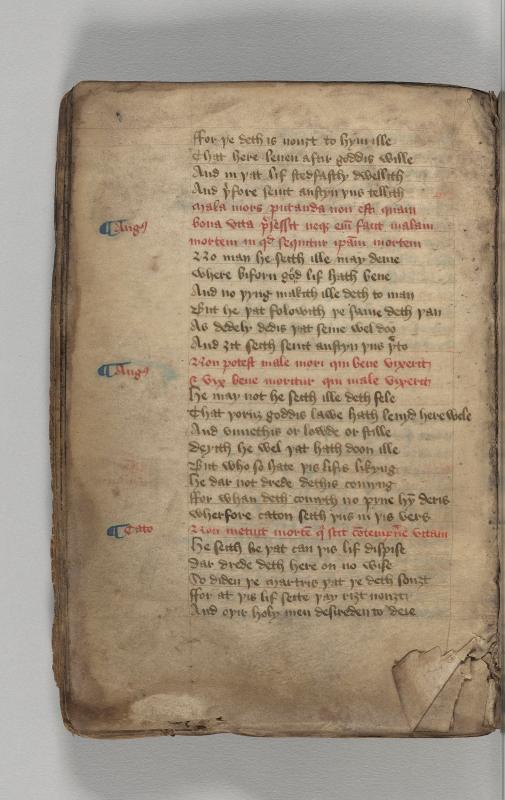 ffor ye deth is nouȝt to hym ille
That here leuen aftir goddis wille
And in yat lif stedfastly dwellith
And yͬfore seint austyn yus tellith
Mala mors putanda non est quam
¶ Augꝰ bona vita p̄cessit neqꝫ em̄ facit malam
mortem nisi qd̄ sequitur ipām mortem
No man he seith ille may deme
Where biforn god lif hath bene
And no yyng makith ille deth to man
But he yat folowith ye same deth yan
As dedely dedis yat seme wel doo
And ȝit seith seint austyn yus yͬto
¶ Augꝰ Non potest male mori qui bene vixerit
& vix bene moritur qui male vixerit
He may not he seith ille deth fele
That yoruȝ goddis lawe hath lenyd here wele
And vnnethis or lowde or stille
deyith he wel yat hath doon ille
But who so hate yis lifis likyng
He dar not drede dethis comyng
ffor whan deth comyth no pyne hȳ deris
Wherfore caton seith yus in yis vers
¶ Cato Non metuit mortē q̄ scit cōtempn̄e vitam
He seith he yat can yis lif dispise
Dar drede deth here on no wise
So diden ye martris yat ye deth souȝt
ffor at yis lif sette yay riȝt nouȝt
And oyir holy men desireden to deie